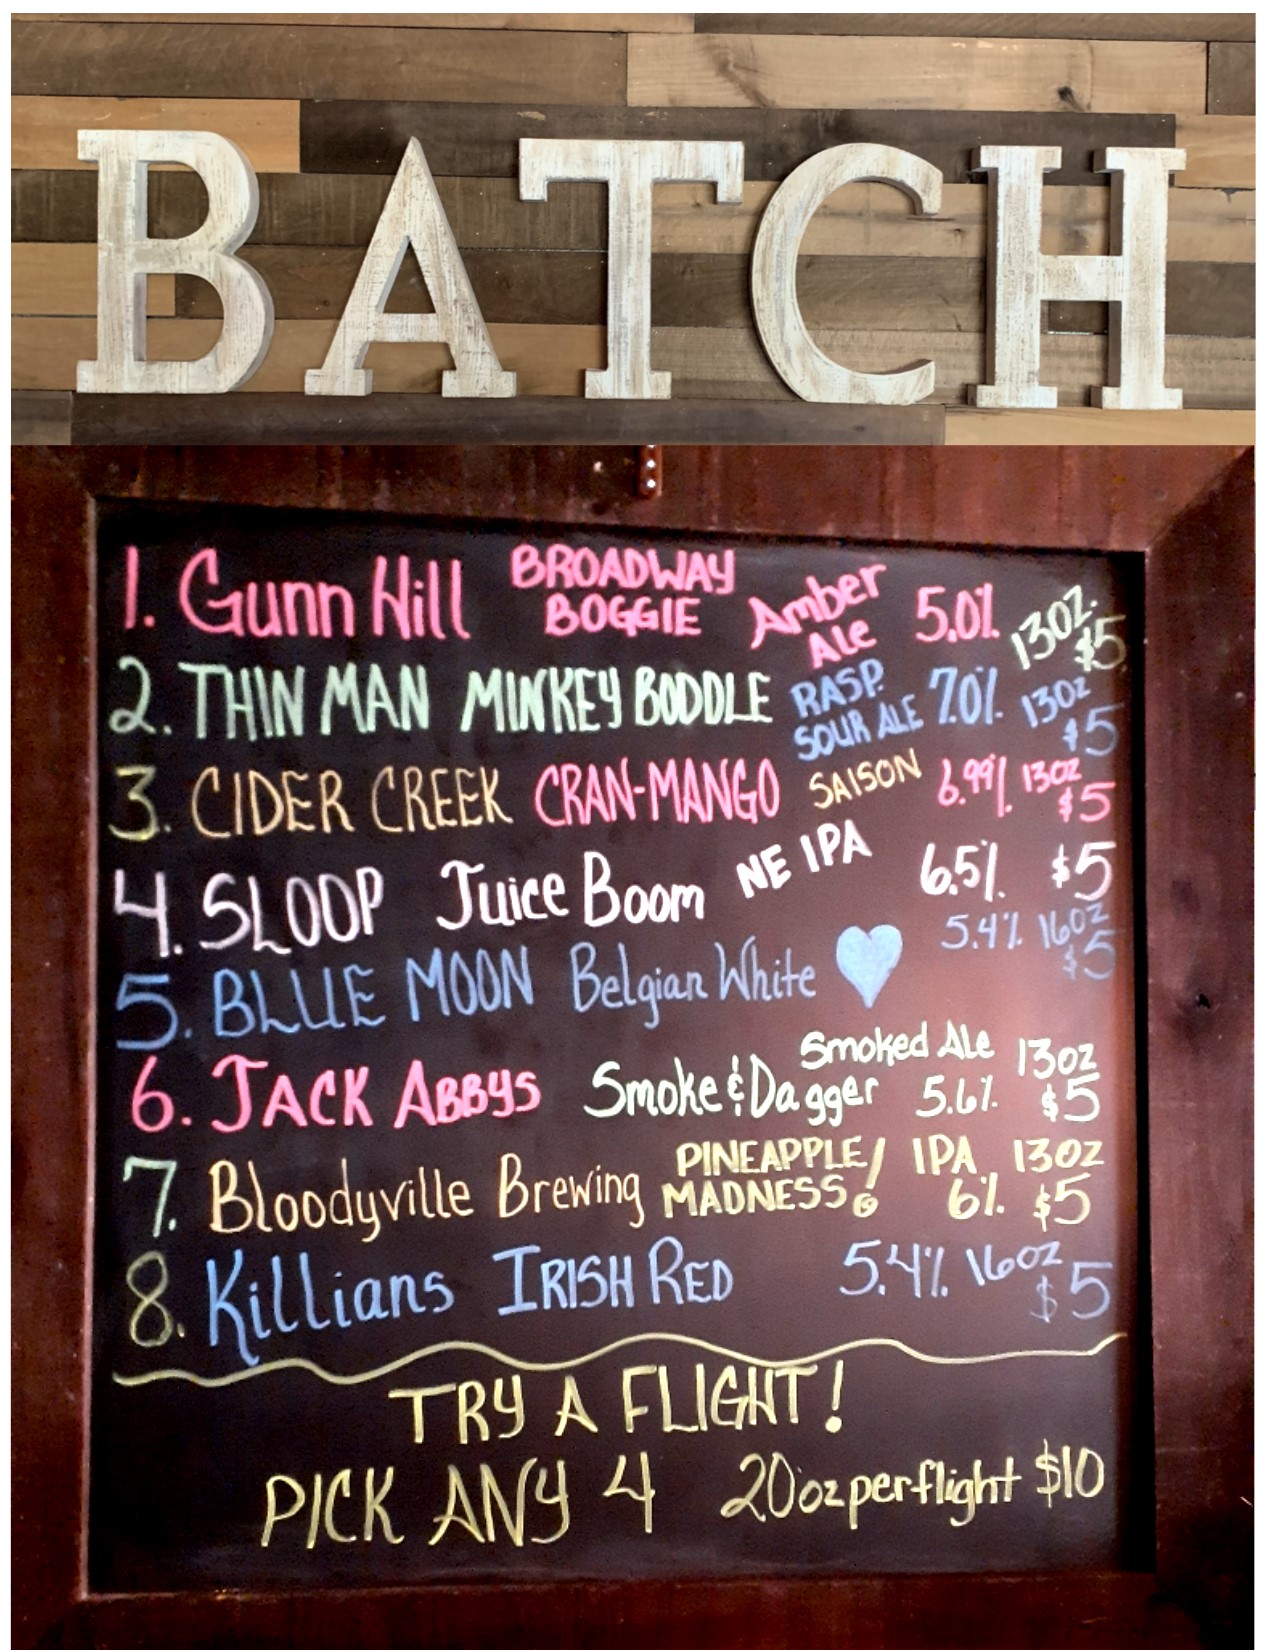 BATCH
1. Gunn Hill BROADWAY BOGGIE Amber Ale 5.0% 13OZ. $5
2. THIN MAN MINKEY BODDLE RASP. SOUR ALE 7.0% 13OZ $5
3. CIDER CREEK CRAN-MANGO SAISON 6.99% 13OZ $5
4. SLOOP Juice Boom NE IPA 6.5% $5
5. BLUE MOON Belgian White 5.4% 16OZ $5
6. JACK ABBYS Smoke & Dagger Smoked Ale 5.6% 13oz $5
7. Bloodyville Brewing PINEAPPLE MADNESS! IPA 6% 13OZ $5
8. Killians IRISH RED 5.4% 16oz $5
TRY A FLIGHT!
PICK ANY 4 20oz per flight $10